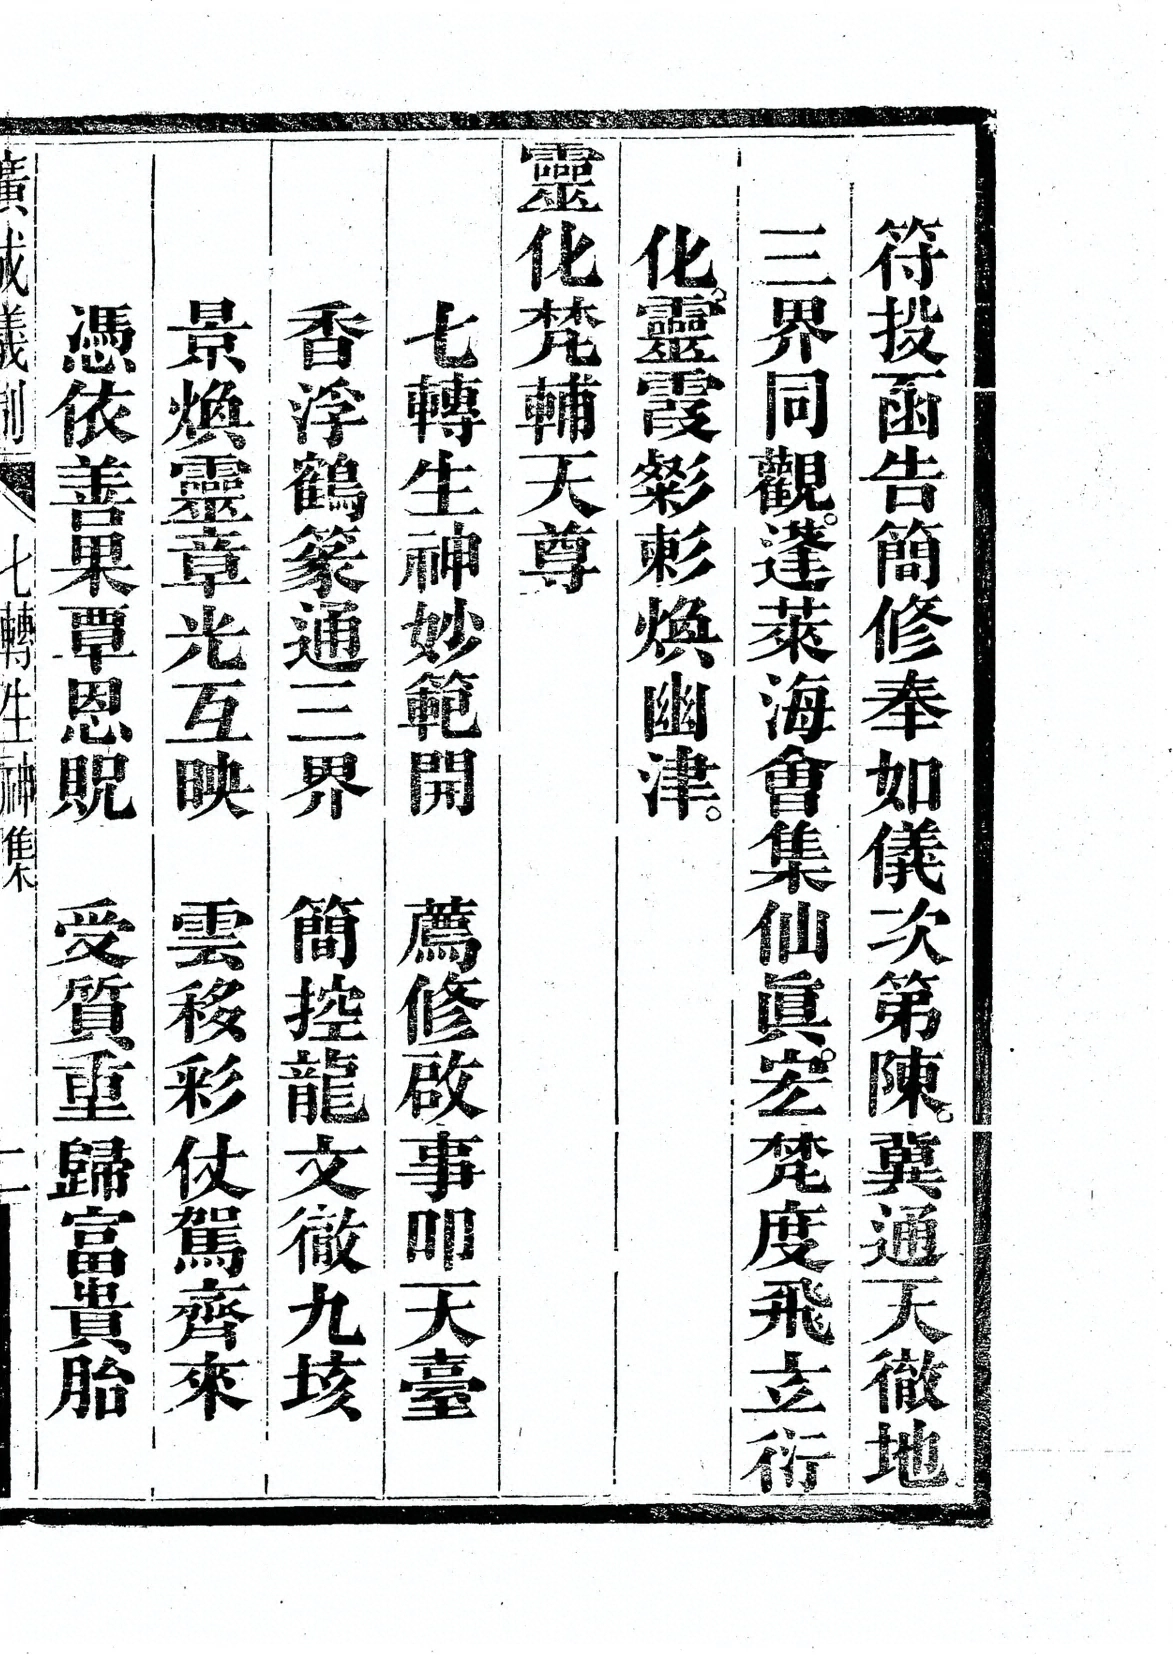 符投函告簡修奉如儀次第陳。冀通天徹地
三界同觀。蓬萊海會集仙眞。宏梵度飛玄衍
化。靈霞粲彩煥幽津。
靈化梵輔天尊
七轉生神妙範開　薦修啟事叩天臺
香浮鶴篆通三界　簡控龍文徹九垓
景煥靈章光互映　雲移彩仗駕齊來
憑依善果覃恩貺　受質重歸富貴胎
廣成儀制　七轉生神集　二